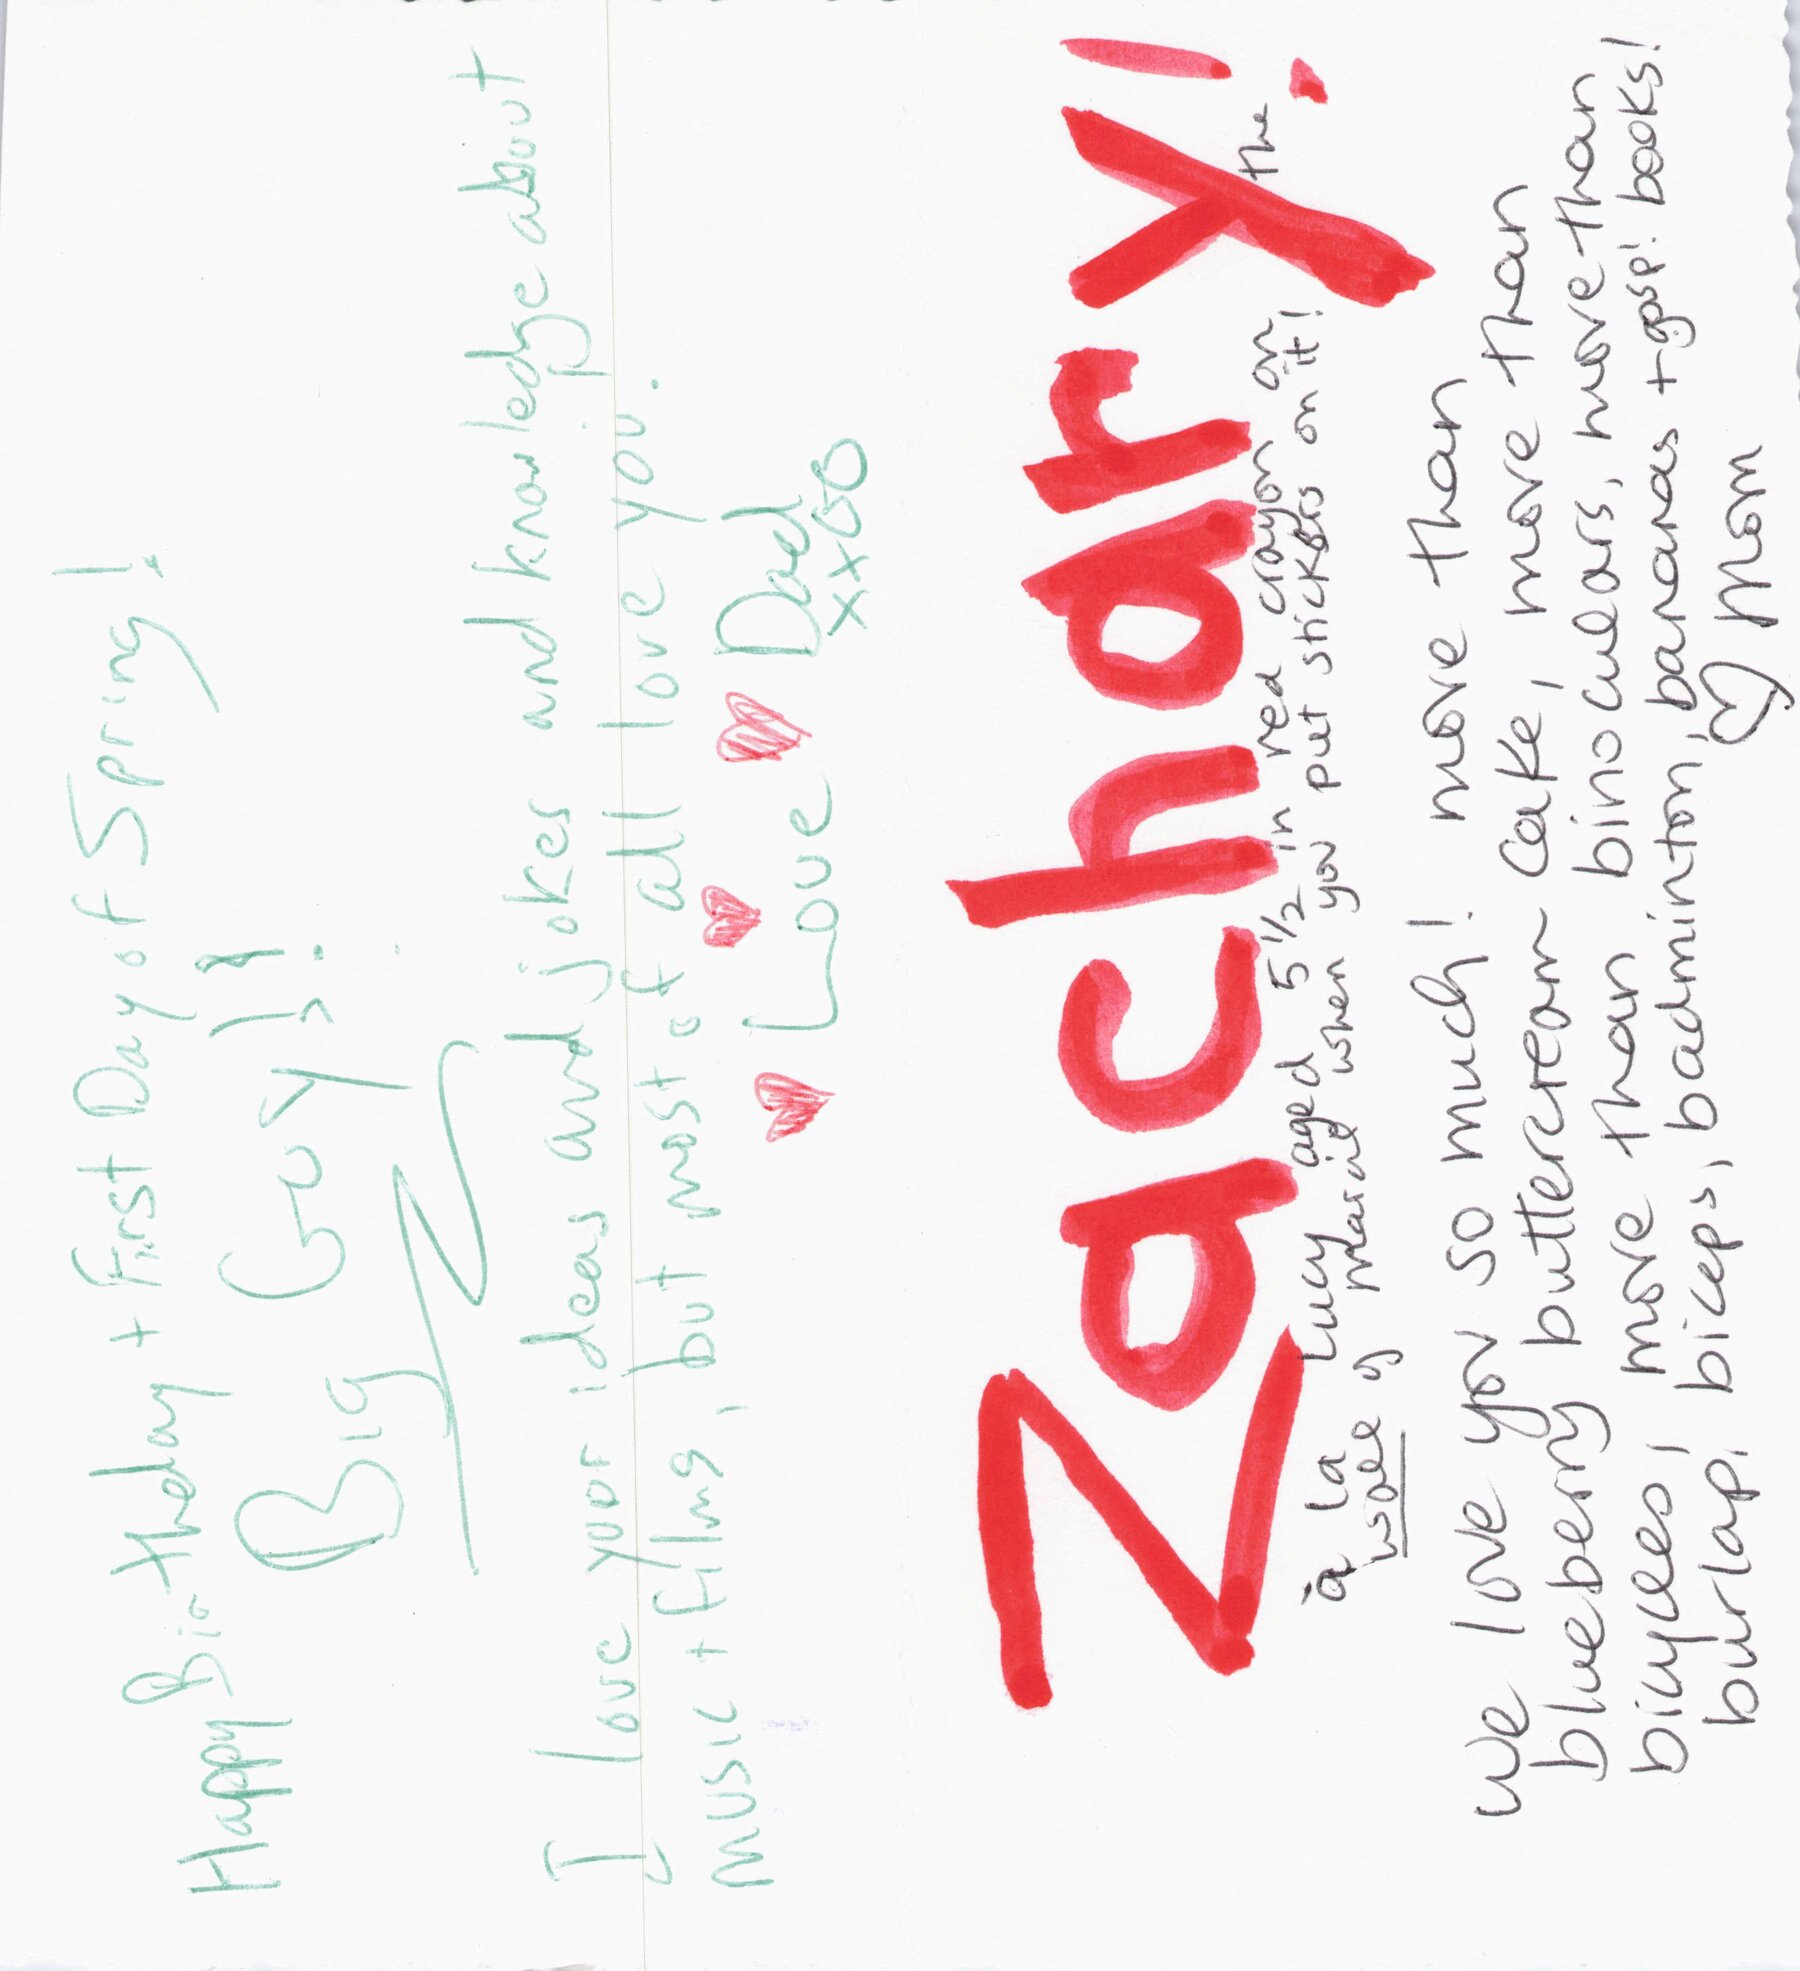 Happy Birthday + First Day of Spring!
Big Guy!!
I love your ideas and jokes and knowledge about
music + films, but most of all I love you.
Love Dad
xxoo
Zachary!
à la Lucy aged 5 1/2 in red crayon on the
wall of Marcie when you put stickers on it!
we love you so much! more than
blueberry buttercream cake, more than
bicycles, more than binoculars, more than
burlap, biceps, badminton, bananas + gasp! books!
♡ Mom